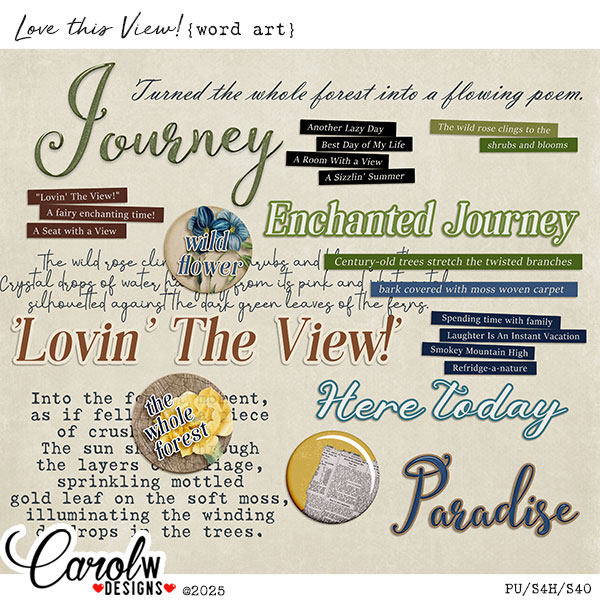 Love this View! {word art}
Journey
Turned the whole forest into a flowing poem.
Another Lazy Day
Best Day of My Life
A Room With a View
A Sizzlin' Summer
The wild rose clings to the
shrubs and blooms
"Lovin' The View!"
A fairy enchanting time!
A Seat with a View
wild
flower
Enchanted Journey
Century-old trees stretch the twisted branches
bark covered with moss woven carpet
The wild rose
Crystal drops of water from its pink and
silhouetted against the dark green leaves of the ferns.
'Lovin' The View!'
Spending time with family
Laughter Is An Instant Vacation
Smokey Mountain High
Refridge-a-nature
Here Today
the
whole
forest
Into the
as if fell piece
of
The sun
the layers
sprinkling mottled
gold leaf on the soft moss,
illuminating the winding
in the trees.
Paradise
CarolW
DESIGNS
@2025
PU/S4H/S4O